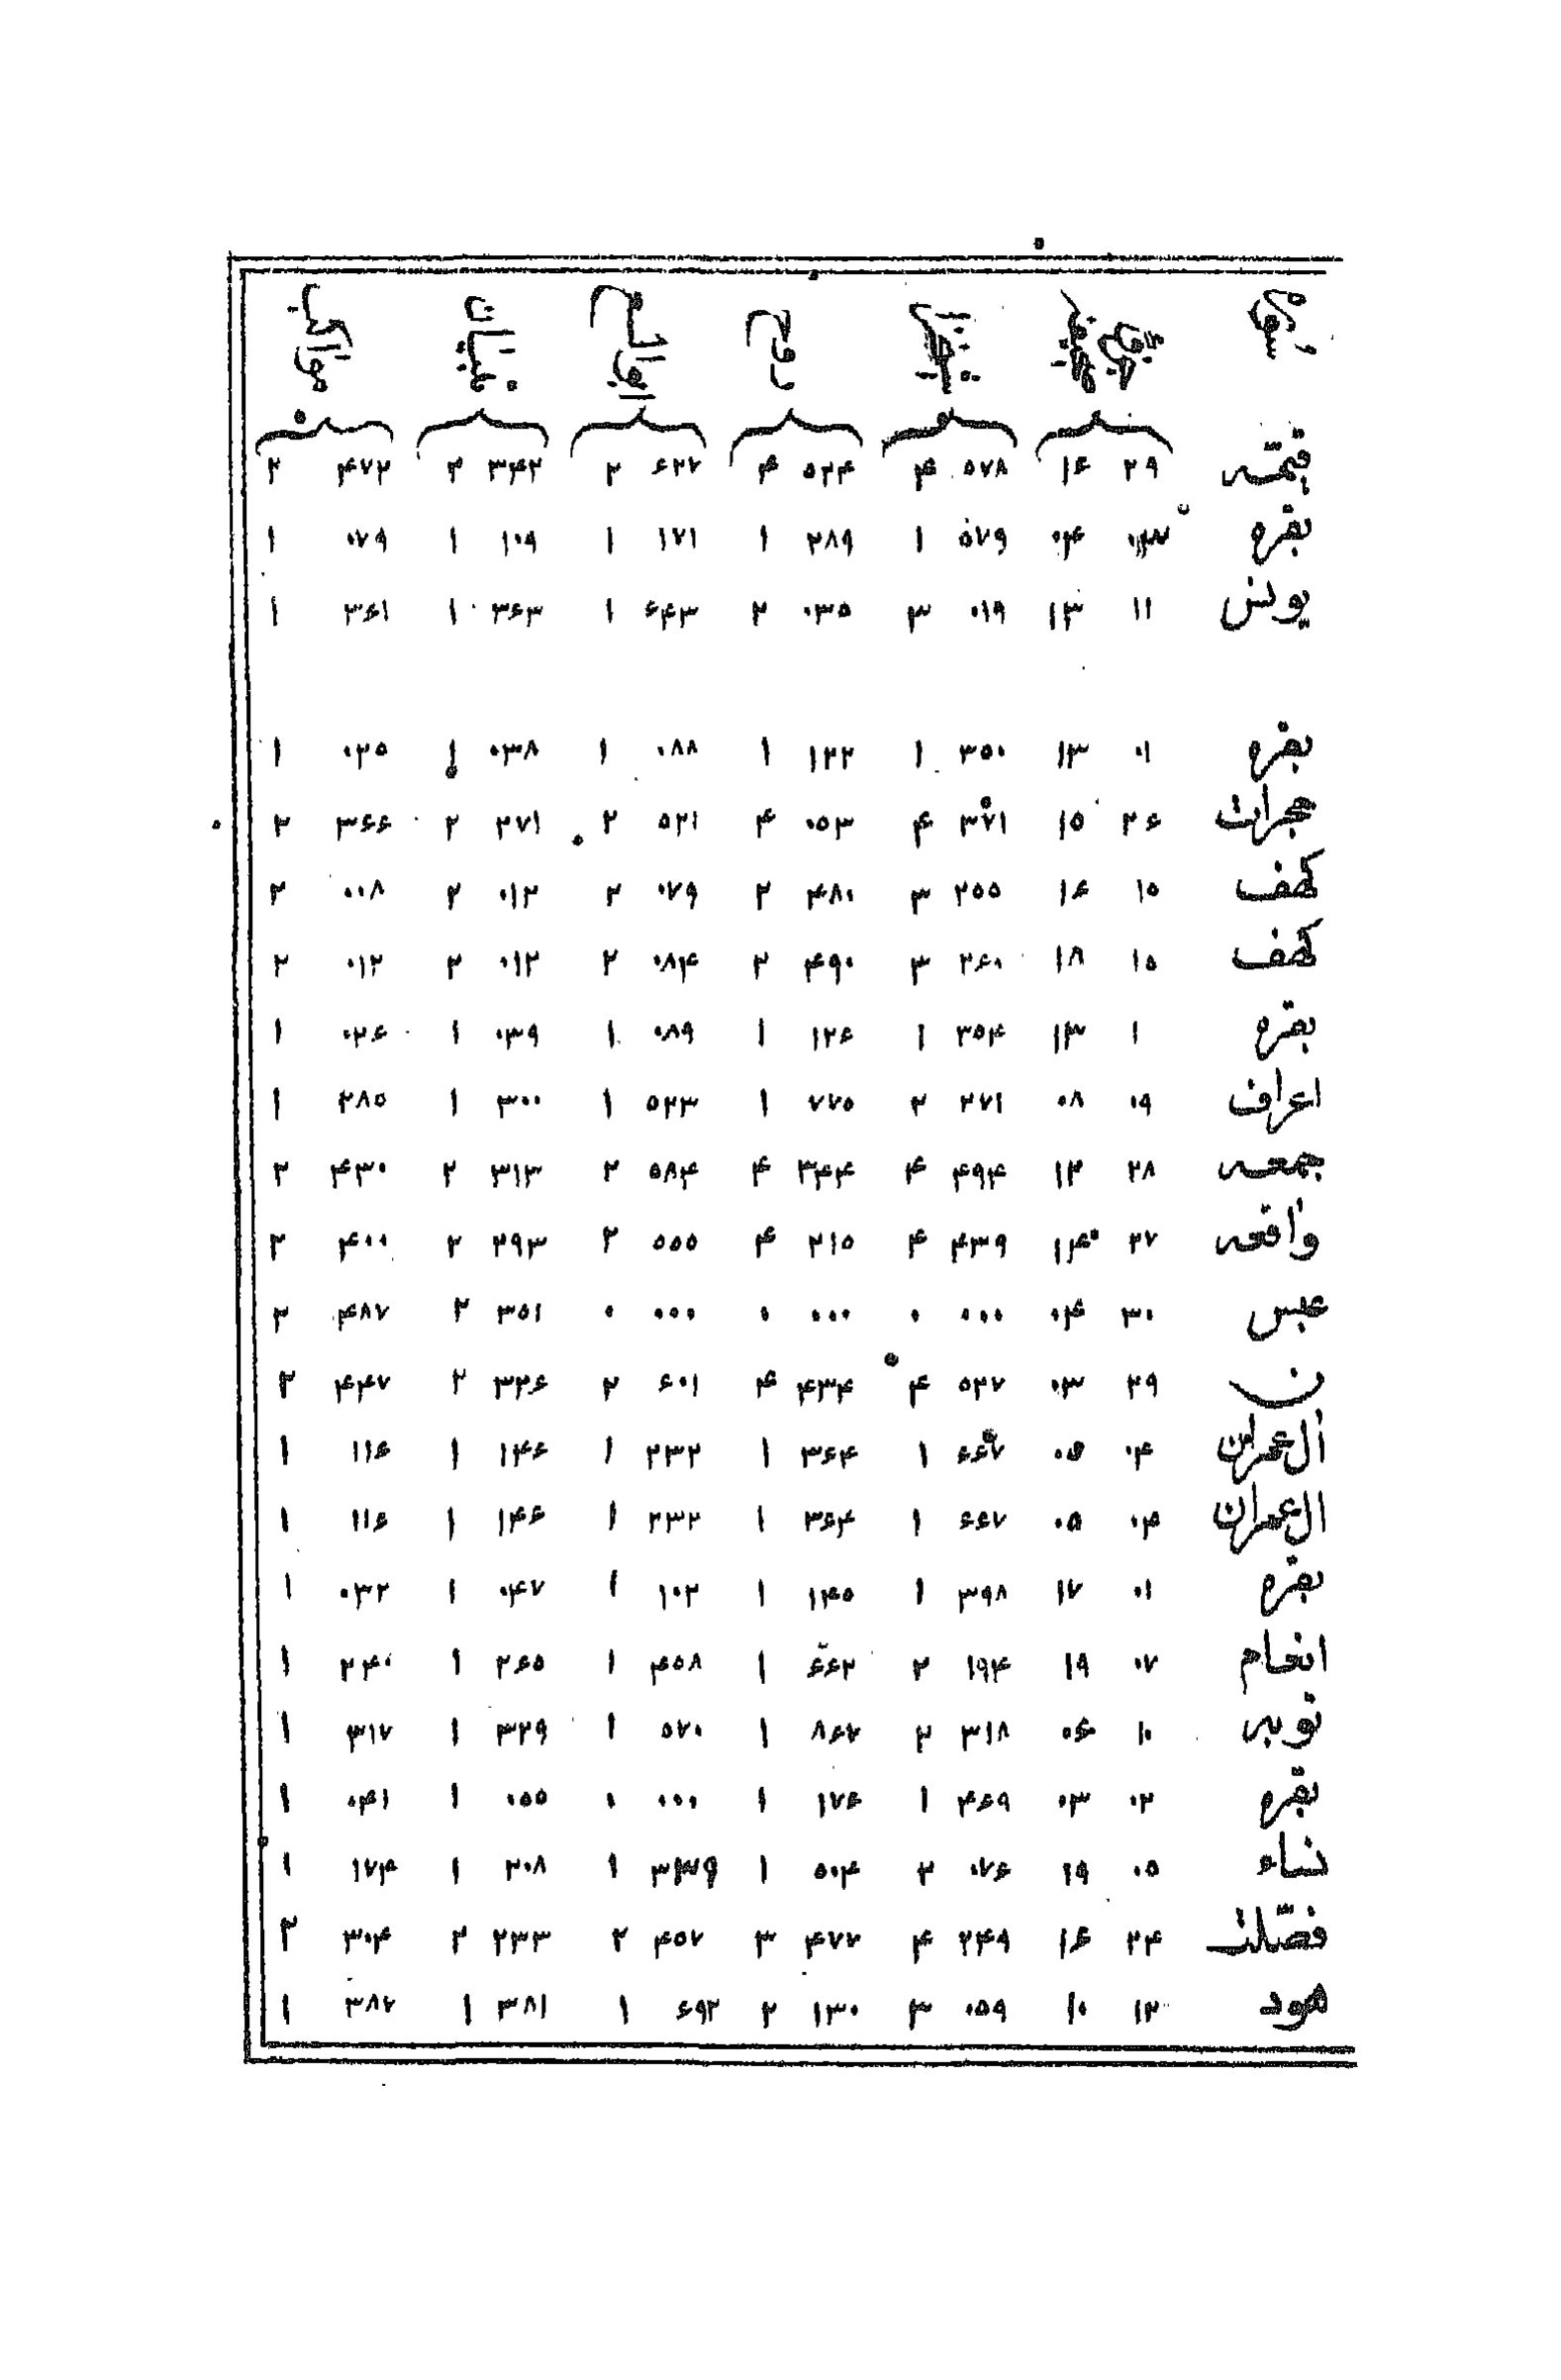 قیمته ۲۹ ۱۶ ۵۷۸ ۴ ۵۲۴ ۴ ۶۲۷ ۲ ۳۴۲ ۲ ۴۷۲ ۲
بقره ۰۴ ۵۷۹ ۱ ۲۸۹ ۱ ۱۷۱ ۱ ۱۰۹ ۱ ۰۷۹ ۱
یونس ۱۱ ۱۳ ۰۱۹ ۳ ۰۳۵ ۲ ۶۴۳ ۱ ۳۶۳ ۱ ۳۶۱ ۱
بقره ۰۱ ۱۳ ۳۵۰ ۱ ۱۲۲ ۱ ۰۸۸ ۱ ۰۳۸ ۱ ۰۲۵ ۱
حجرات ۲۶ ۱۵ ۳۷۱ ۴ ۰۵۳ ۴ ۵۲۱ ۲ ۲۷۱ ۲ ۳۶۶ ۲
کهف ۱۵ ۱۶ ۲۵۵ ۳ ۴۸۰ ۲ ۰۷۹ ۲ ۰۱۲ ۲ ۰۰۸ ۲
کهف ۱۵ ۱۸ ۲۶۰ ۳ ۴۹۰ ۲ ۰۸۴ ۲ ۰۱۲ ۲ ۰۱۲ ۲
بقره ۱ ۱۳ ۳۵۴ ۱ ۱۲۶ ۱ ۰۸۹ ۱ ۰۳۹ ۱ ۰۲۶ ۱
اعراف ۰۹ ۰۸ ۲۷۱ ۲ ۷۷۵ ۱ ۵۲۳ ۱ ۳۰۰ ۱ ۲۸۵ ۱
جمعه ۲۸ ۱۲ ۴۹۴ ۴ ۳۴۴ ۴ ۵۸۴ ۲ ۳۱۳ ۲ ۴۳۰ ۲
واقعه ۲۷ ۱۴ ۴۳۹ ۴ ۲۱۵ ۴ ۵۵۵ ۲ ۲۹۳ ۲ ۴۰۰ ۲
عبس ۳۰ ۰۴ ۰۰۰ ۰ ۰۰۰ ۰ ۰۰۰ ۰ ۳۵۱ ۲ ۴۸۷ ۲
ن ۲۹ ۰۳ ۵۲۷ ۴ ۴۳۴ ۴ ۶۰۱ ۲ ۳۲۶ ۲ ۴۴۷ ۲
آل عمران ۰۴ ۰۵ ۶۶۷ ۱ ۳۶۴ ۱ ۲۳۲ ۱ ۱۴۶ ۱ ۱۱۶ ۱
ال عمران ۰۴ ۰۵ ۶۶۷ ۱ ۳۶۴ ۱ ۲۳۲ ۱ ۱۴۶ ۱ ۱۱۶ ۱
بقره ۰۱ ۱۷ ۳۹۸ ۱ ۱۴۵ ۱ ۱۰۲ ۱ ۰۴۷ ۱ ۰۳۲ ۱
انعام ۰۷ ۱۹ ۱۹۴ ۲ ۶۶۲ ۱ ۴۵۸ ۱ ۲۶۵ ۱ ۲۴۰ ۱
توبه ۱۰ ۰۶ ۳۱۸ ۲ ۸۶۷ ۱ ۵۷۰ ۱ ۳۲۹ ۱ ۳۱۷ ۱
بقره ۰۲ ۰۳ ۴۶۹ ۱ ۱۷۶ ۱ ۰۰۰ ۰ ۰۵۵ ۱ ۰۴۱ ۱
نساء ۰۵ ۱۹ ۰۷۶ ۲ ۵۰۴ ۱ ۱ ۲۰۸ ۱ ۱۷۴ ۱
فصّلت ۲۴ ۱۶ ۲۴۹ ۴ ۴۷۷ ۳ ۴۵۷ ۲ ۲۳۳ ۲ ۳۰۴ ۲
هود ۱۲ ۱۰ ۰۵۹ ۳ ۱۳۰ ۲ ۶۹۲ ۱ ۳۸۱ ۱ ۳۸۷ ۱